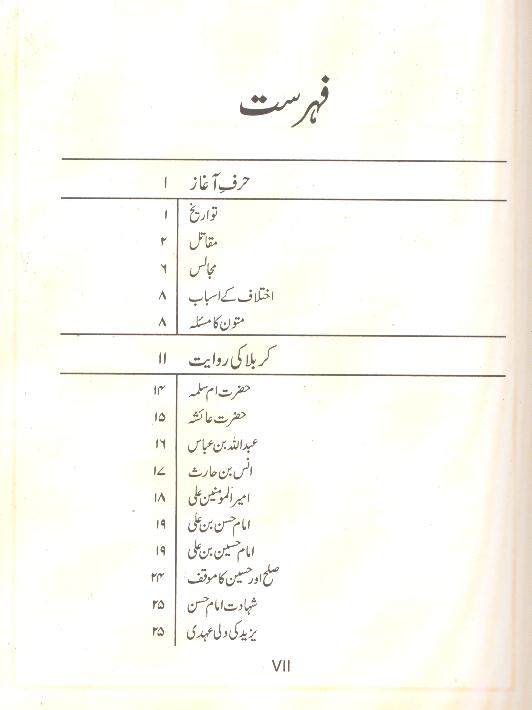 فہرست
حرفِ آغاز ۱
تواریخ ۱
مقاتل ۲
مجالس ۶
اختلاف کے اسباب ۸
متون کا مسئلہ ۸
کربلا کی روایت ۱۱
حضرت ام سلمہ ۱۴
حضرت عائشہ ۱۵
عبداللہ بن عباس ۱۶
انس بن حارث ۱۷
امیرالمومنین علی ۱۸
امام حسن بن علی ۱۹
امام حسین بن علی ۱۹
صلح اور حسین کا موقف ۲۴
شہادت امام حسن ۲۵
یزید کی ولی عہدی ۲۵
VII